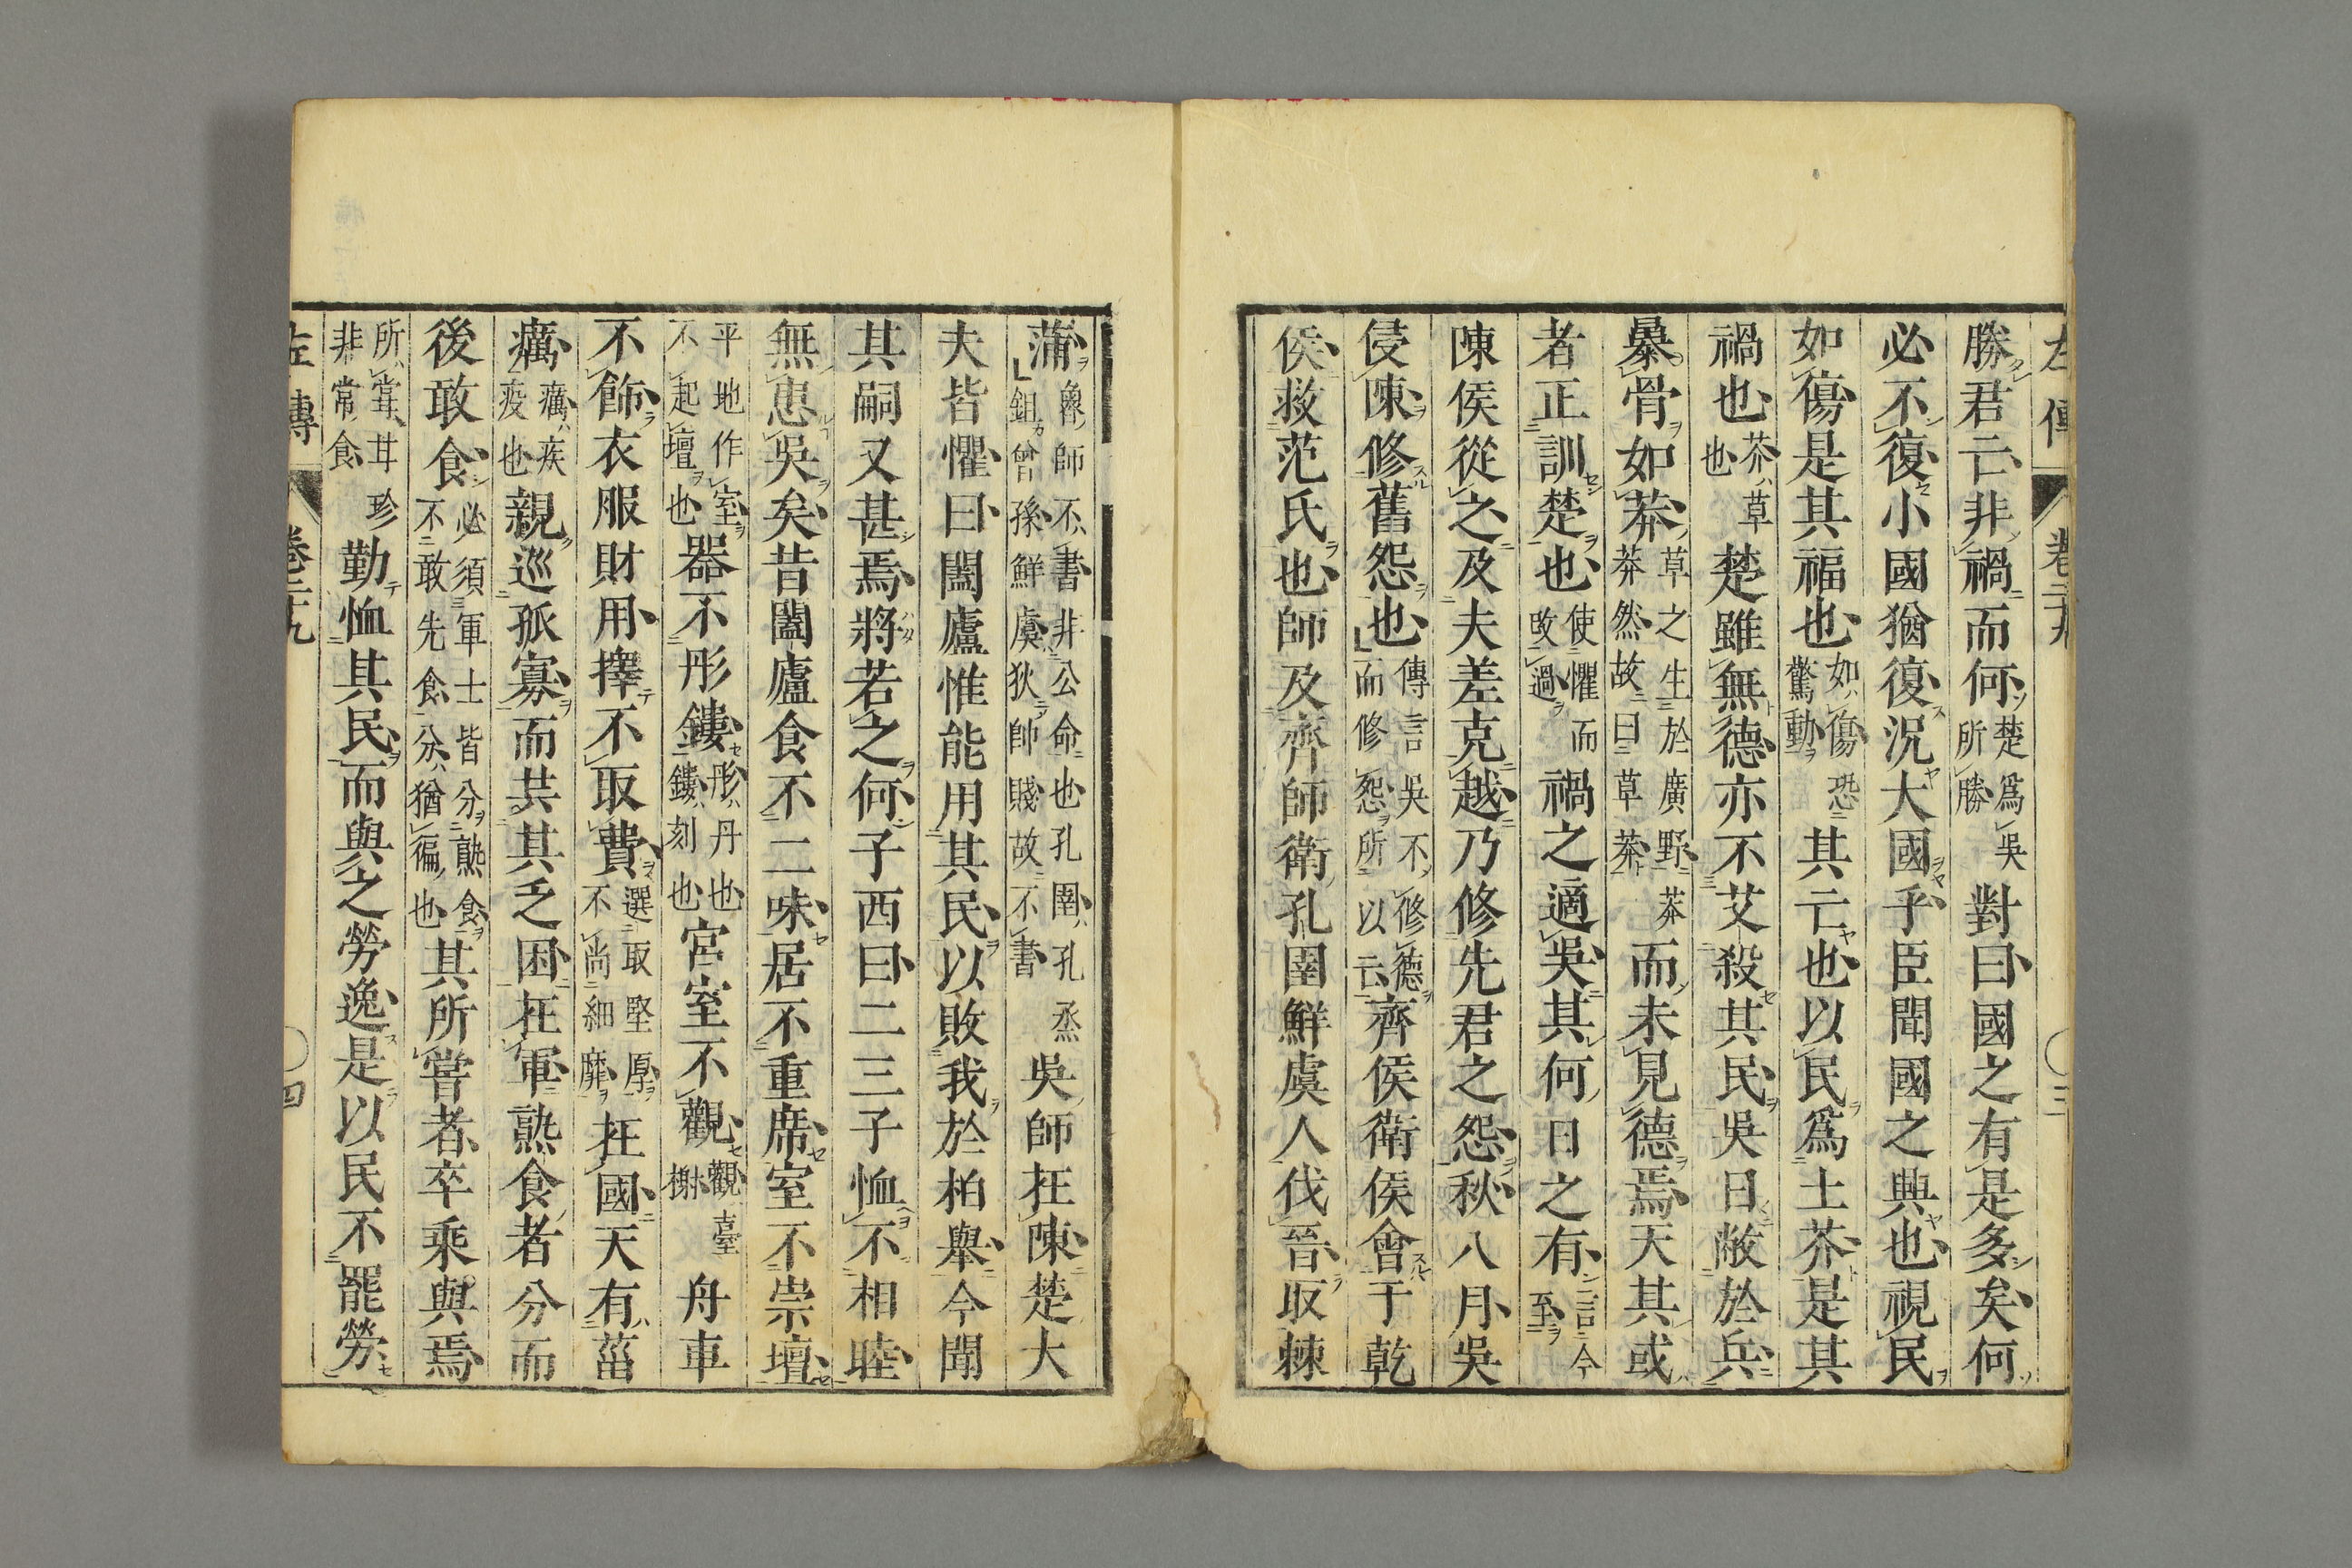 左傳 卷二十九 三
勝君亡非禍而何楚爲吳所勝對曰國之有是多矣何
必不復小國猶復況大國乎臣聞國之興也視民
如傷是其福也如傷恐驚動其亡也以民爲土芥是其
禍也芥草也楚雖無德亦不艾殺其民吳日敝於兵
暴骨如莽草之生於廣野莽莽然故曰草莽而未見德焉天其或
者正訓楚也使懼而改過禍之適吳其何日之有言今至
陳侯從之及夫差克越乃修先君之怨秋八月吳
侵陳修舊怨也傳言吳不修德而修怨所以亡齊侯衛侯會于乾
侯救范氏也師及齊師衛孔圉鮮虞人伐晉取棘
蒲魯師不書非公命也孔圉孔烝鉏曾孫鮮虞狄帥賤故不書吳師在陳楚大
夫皆懼曰闔廬惟能用其民以敗我於柏舉今聞
其嗣又甚焉將若之何子西曰二三子恤不相睦
無患吳矣昔闔廬食不二味居不重席室不崇壇
平地作室不起壇也器不彤鏤彤丹也鏤刻也宮室不觀觀臺榭舟車
不飾衣服財用擇不取費選取堅厚不尚細靡在國天有菑
癘癘疾疫也親巡孤寡而共其乏困在軍熟食者分而
後敢食必須軍士皆分熟食不敢先食分猶徧也其所嘗者卒乘與焉
所嘗甘珍非常食勤恤其民而與之勞逸是以民不罷勞
左傳 卷二十九 四